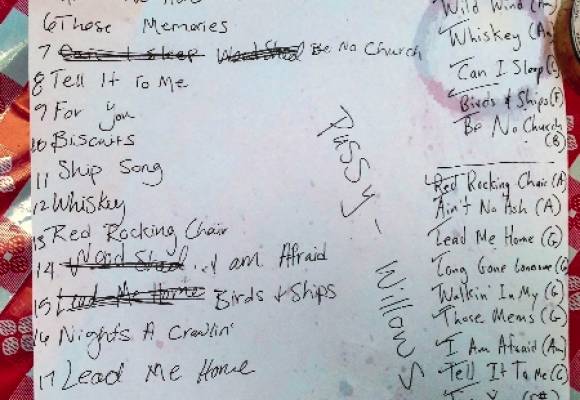 6 Those Memories
7 Can I Sleep Wood Shed Be No Church
8 Tell It To Me
9 For you
10 Biscuits
11 Ship Song
12 Whiskey
13 Red Rocking Chair
14 Wood Shed I am Afraid
15 Lead Me Home Birds & Ships
16 Nights A Crawlin'
17 Lead Me Home
Pussy-
Willows
Wild Wind (Am)
Whiskey (Am)
Can I Sleep
Birds & Ships (F)
Be No Church
(B)
Red Rocking Chair (A)
Ain't No Ash (A)
Lead Me Home (G)
Long Gone Lonesome (G)
Walkin' In My (G)
Those Mems (G)
I Am Afraid (Am)
Tell It To Me (C)